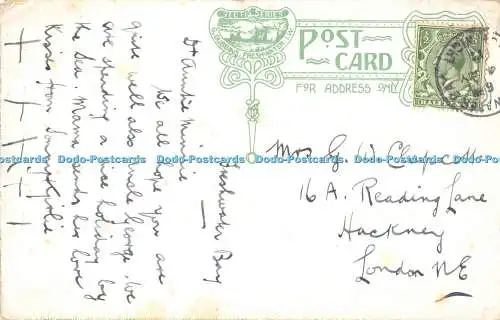 Freshwater Bay
Dr Auntie Minnie
We all hope you are
quite well also Uncle George. We
are spending a nice holiday by
the Sea. Mama sends her love
Kisses from Sonny & Girlie
POST
CARD
FOR ADDRESS ONLY
HALFPENNY
Mrs G W Chapell
16 A. Reading Lane
Hackney
London NE
Dodo-Postcards Dodo-Postcards Dodo-Postcards Dodo-Postcards Dodo-Postcards